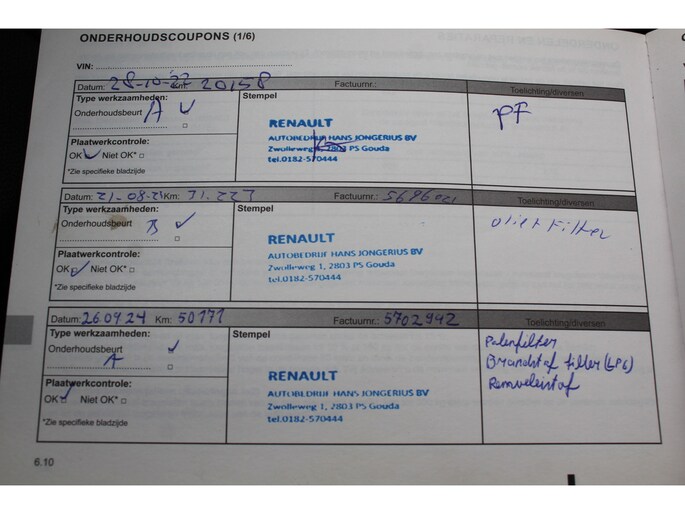 ONDERHOUDSCOUPONS (1/6)
VIN:
Datum: 28-10-22 Km: 20158 Factuurnr.: Toelichting/diversen
Type werkzaamheden: Stempel
Onderhoudsbeurt A PF
RENAULT
AUTOBEDRIJF HANS JONGERIUS BV
Plaatwerkcontrole:
Zwolleweg 1, 2803 PS Gouda
OK Niet OK*
tel.0182-570444
*Zie specifieke bladzijde
Datum: Km: 31.227 Factuurnr.: Toelichting/diversen
Type werkzaamheden: Stempel
Onderhoudsbeurt B olie+Filter
RENAULT
AUTOBEDRIJF HANS JONGERIUS BV
Plaatwerkcontrole:
Zwolleweg 1, 2803 PS Gouda
OK Niet OK*
tel.0182-570444
*Zie specifieke bladzijde
Datum: 26.09.24 Km: 50171 Factuurnr.: 5702942 Toelichting/diversen
Type werkzaamheden: Stempel
Onderhoudsbeurt
A
Polenfilter
Brandstof filter (LPG)
Remvloeistof
RENAULT
AUTOBEDRIJF HANS JONGERIUS BV
Plaatwerkcontrole:
Zwolleweg 1, 2803 PS Gouda
OK Niet OK*
tel.0182-570444
*Zie specifieke bladzijde
6.10